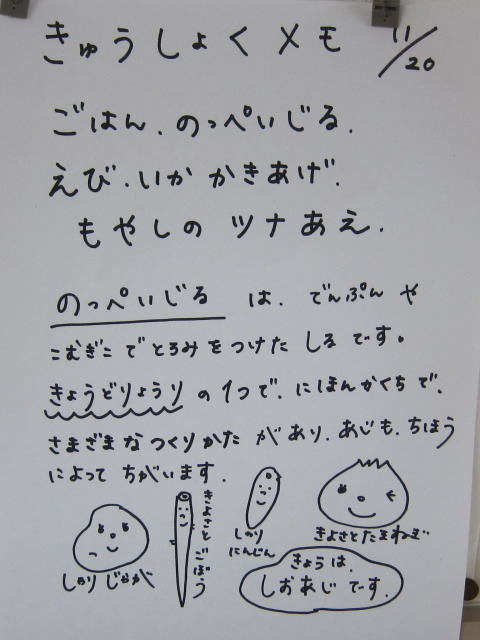 きゅうしょくメモ 11/20
ごはん．のっぺいじる．
えび．いか かきあげ．
もやしの ツナあえ．
のっぺいじる は、でんぷん や
こむぎこ で とろみ を つけた しる です。
きょうどりょうり の 1つ で、にほんかくち で、
さまざまな つくりかた が あり、あじ も、ちほう
によって ちがいます．
しゃり じゃが
きよさと ごぼう
しゃり
にんじん
きよさと たまねぎ
きょう は、
しおあじ です．